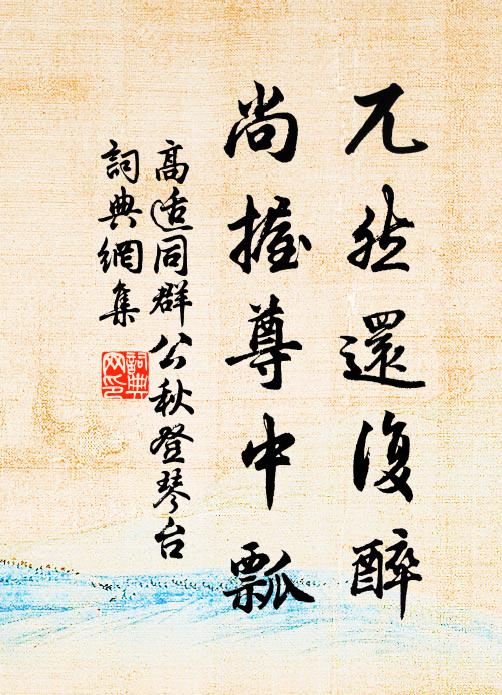 兀然還復醉
尚握尊中瓢
高适同群公秋登琴台
詞典網集
詞典
网印